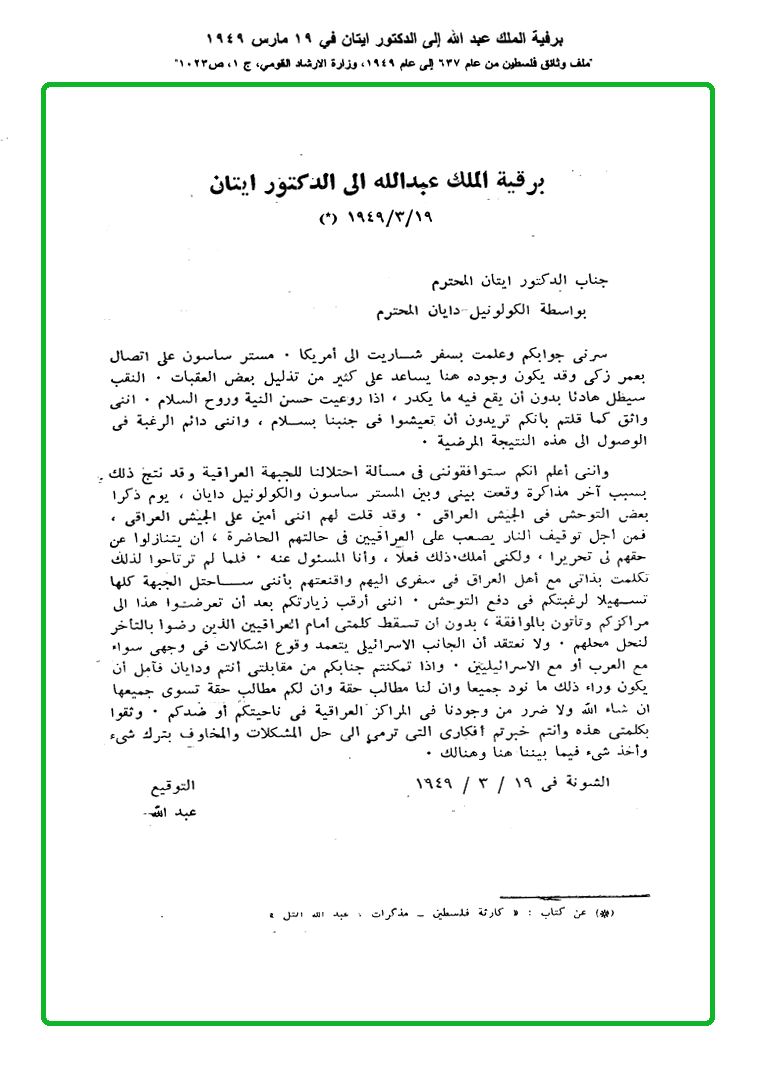 برقية الملك عبد الله إلى الدكتور ايتان في ١٩ مارس ١٩٤٩
"ملف وثائق فلسطين من عام ٦٣٧ إلى عام ١٩٤٩، وزارة الارشاد القومي، ج ١، ص١٠٢٣"
برقية الملك عبدالله الى الدكتور ايتان
١٩/٣/١٩٤٩ (*)
جناب الدكتور ايتان المحترم
بواسطة الكولونيل دايان المحترم
سرنى جوابكم وعلمت بسفر شاريت الى أمريكا ٠ مستر ساسون على اتصال
بعمر زكى وقد يكون وجوده هنا يساعد على كثير من تذليل بعض العقبات ٠ النقب
سيظل هادئا بدون أن يقع فيه ما يكدر ، اذا روعيت حسن النية وروح السلام ٠ اننى
واثق كما قلتم بأنكم تريدون أن تعيشوا فى جنبنا بسلام ، واننى دائم الرغبة فى
الوصول الى هذه النتيجة المرضية ٠
واننى أعلم انكم ستوافقوننى فى مسألة احتلالنا للجبهة العراقية وقد نتج ذلك
بسبب آخر مذاكرة وقعت بينى وبين المستر ساسون والكولونيل دايان ، يوم ذكرا
بعض التوحش فى الجيش العراقى ٠ وقد قلت لهم اننى أمين على الجيش العراقى ،
فمن أجل توقيف النار يصعب على العراقيين فى حالتهم الحاضرة ، أن يتنازلوا عن
حقهم لى تحريرا ، ولكنى أملك ذلك فعلا ، وأنا المسئول عنه ٠ فلما لم ترتاحوا لذلك
تكلمت بذاتى مع أهل العراق فى سفرى اليهم واقنعتهم بأننى ساحتل الجبهة كلها
تسهيلا لرغبتكم فى دفع التوحش ٠ اننى أرقب زيارتكم بعد أن تعرضوا هذا الى
مراكزكم وتأتون بالموافقة ، بدون أن تسقط كلمتى أمام العراقيين الذين رضوا بالتأخر
لنحل محلهم ٠ ولا نعتقد أن الجانب الاسرائيلى يتعمد وقوع اشكالات فى وجهى سواء
مع العرب أو مع الاسرائيليين ٠ واذا تمكنتم جنابكم من مقابلتى أنتم ودايان فآمل أن
يكون وراء ذلك ما نود جميعا وان لنا مطالب حقة وان لكم مطالب حقة تسوى جميعها
ان شاء الله ولا ضرر من وجودنا فى المراكز العراقية فى ناحيتكم أو ضدكم ٠ وثقوا
بكلمتى هذه وأنتم خبرتم أفكارى التى ترمى الى حل المشكلات والمخاوف بترك شىء
وأخذ شىء فيما بيننا هنا وهنالك ٠
الشونة فى ١٩ / ٣ / ١٩٤٩
التوقيع
عبد الله
(*) عن كتاب : « كارثة فلسطين ــ مذكرات ، عبد الله التل »